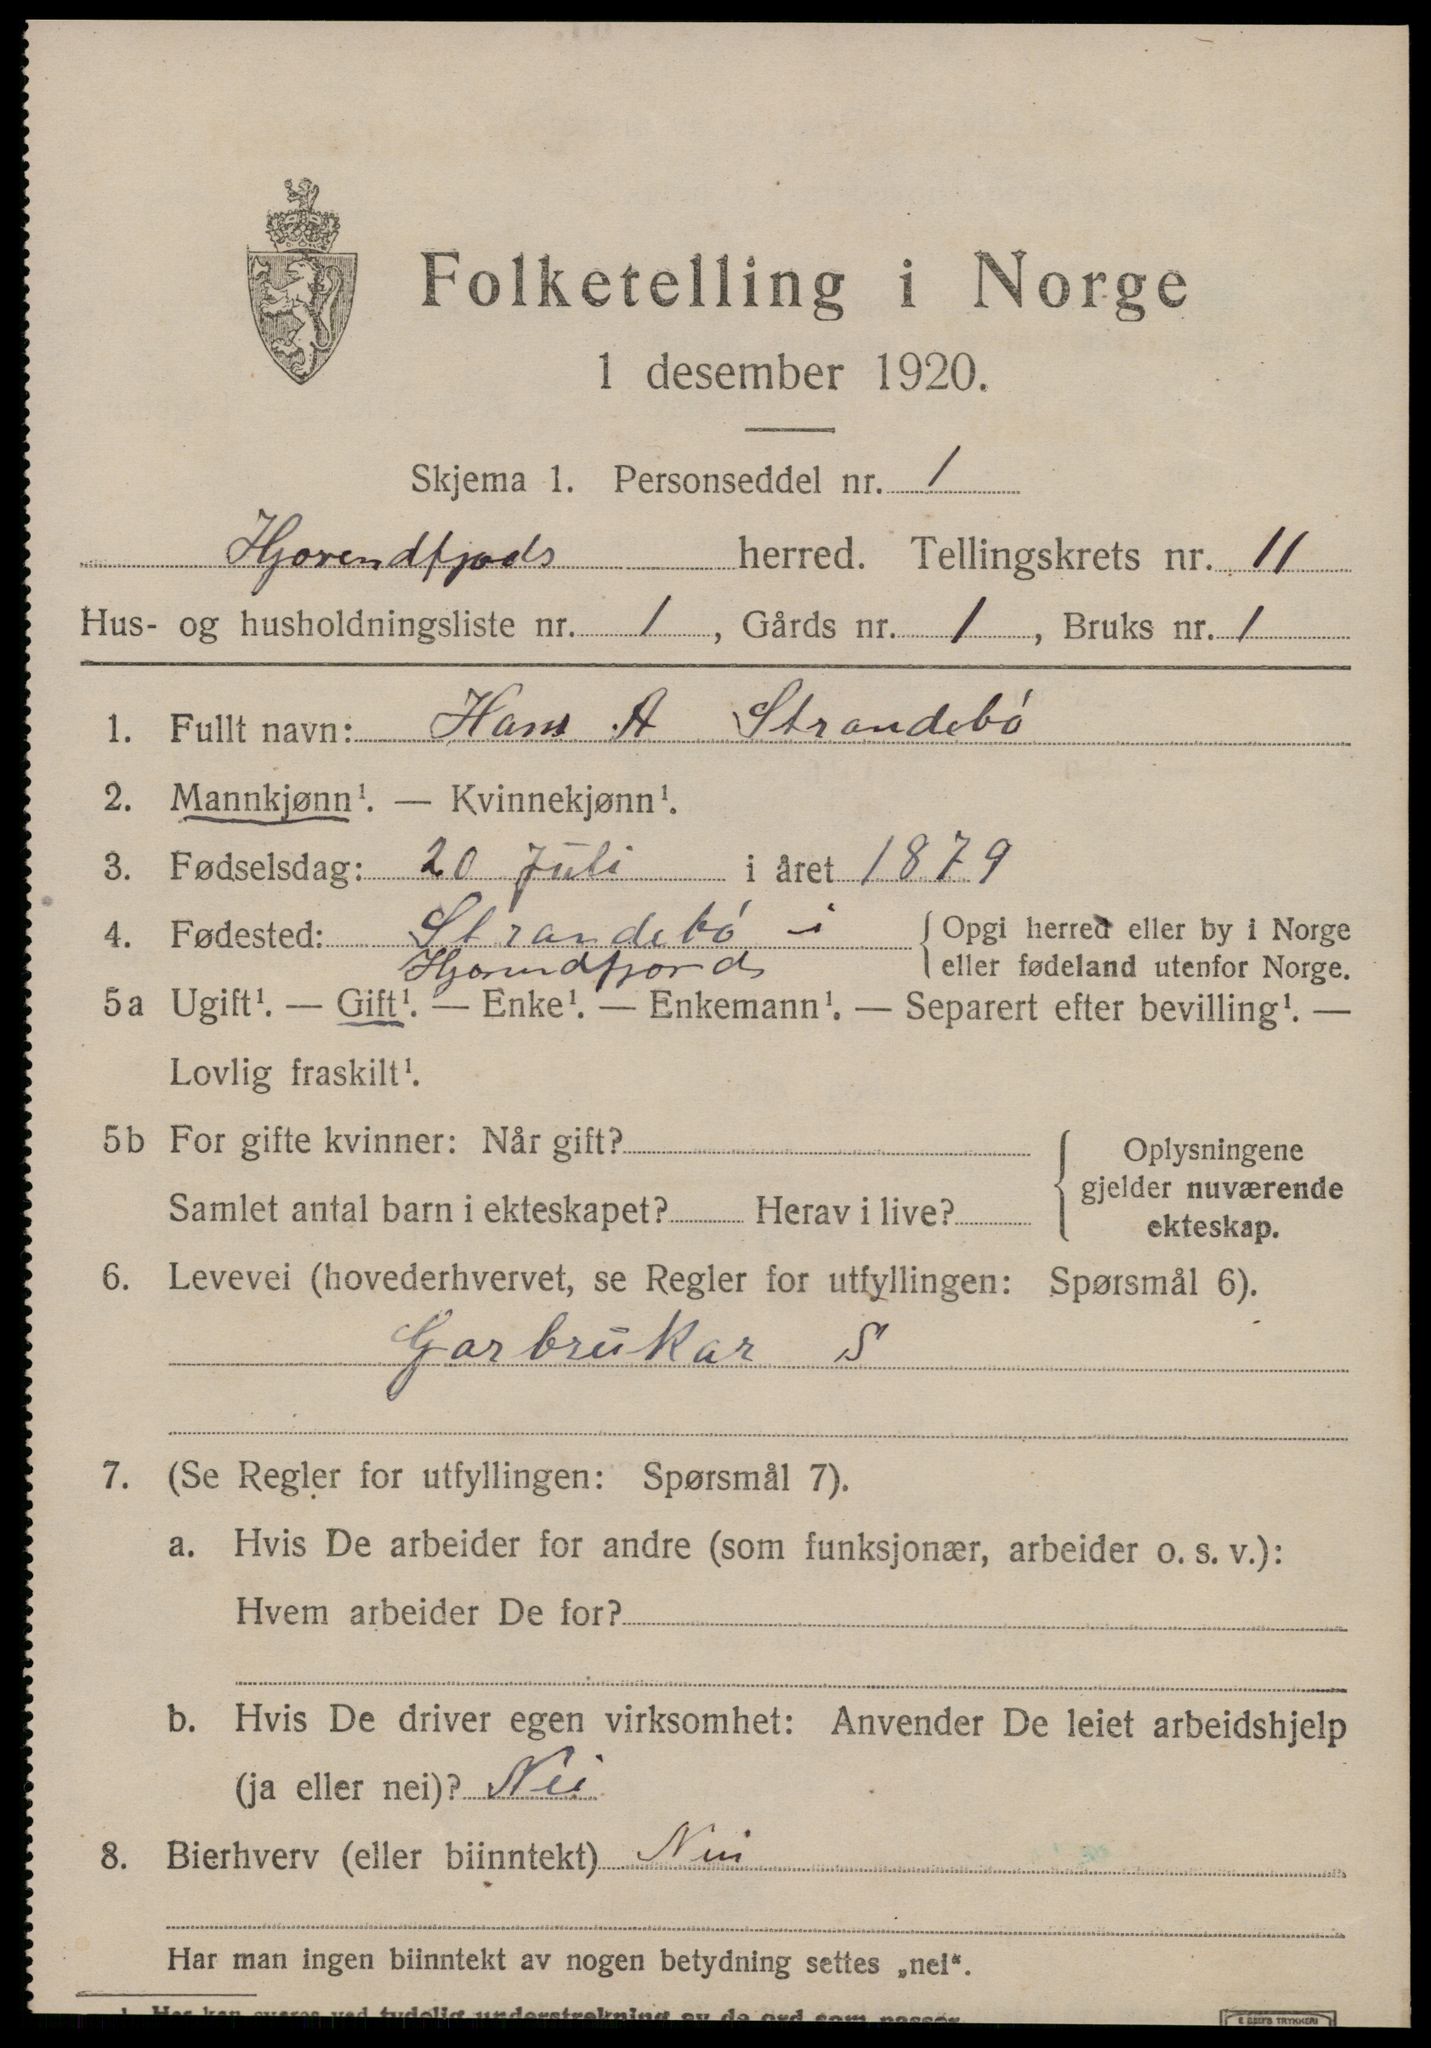 Folketelling i Norge
1 desember 1920.
Skjema 1. Personseddel nr. 1
Hjorendfjords herred. Tellingskrets nr. 11
Hus- og husholdningsliste nr. 1, Gårds nr. 1, Bruks nr. 1
1. Fullt navn: Hans A Strandebó
2. Mannkjønn¹. — Kvinnekjønn¹.
3. Fødselsdag: 20 Juli i året 1879
4. Fødested: Strandebó i { Opgi herred eller by i Norge
Hjorundfjord eller fødeland utenfor Norge.
5a Ugift¹. — Gift¹. — Enke¹. — Enkemann¹. — Separert efter bevilling¹. —
Lovlig fraskilt¹.
5b For gifte kvinner: Når gift? { Oplysningene
gjelder nuværende
Samlet antal barn i ekteskapet? Herav i live?
ekteskap.
6. Levevei (hovederhvervet, se Regler for utfyllingen: Spørsmål 6).
Garbrukar S
7. (Se Regler for utfyllingen: Spørsmål 7).
a. Hvis De arbeider for andre (som funksjonær, arbeider o. s. v.):
Hvem arbeider De for?
b. Hvis De driver egen virksomhet: Anvender De leiet arbeidshjelp
(ja eller nei)? Nei
8. Bierhverv (eller biinntekt) Nei
Har man ingen biinntekt av nogen betydning settes „nei“.
¹ Her kan svares ved tydelig understrekning av de ord som passer.